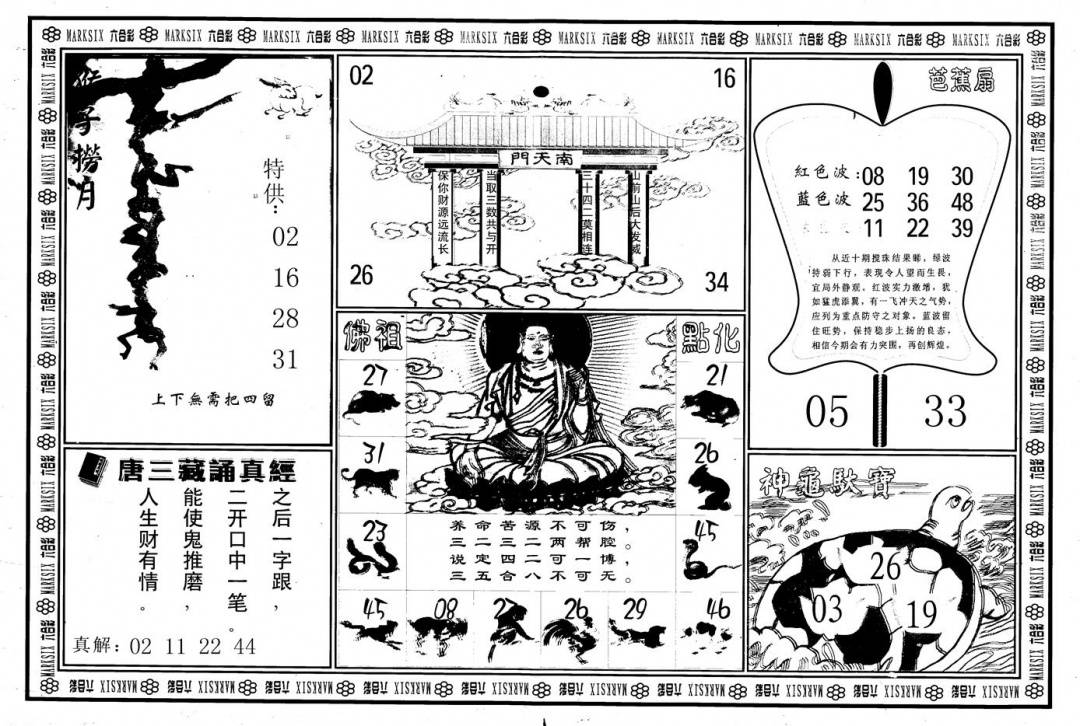 MARKSIX 六合彩 MARKSIX 六合彩 MARKSIX 六合彩 MARKSIX 六合彩 MARKSIX 六合彩 MARKSIX 六合彩 MARKSIX 六合彩 MARKSIX 六合彩 MARKSIX 六合彩 MARKSIX 六合彩
猴子撈月
特供：
02
16
28
31
上下無需把四留
唐三藏誦真經
之后一字跟，
二开口中一笔。
能使鬼推磨，
人生财有情。
真解：02 11 22 44
02
16
南天門
山前山后大发威
三十四二莫相连
当取三数共与开
保你财源远流长
26
34
佛祖
點化
27
21
31
26
23
45
养命苦源不可伤，
三二三二两帮腔。
说定四二可一博，
三五合八不可无。
45
08
26
29
46
芭蕉扇
紅色波：08 19 30
藍色波 25 36 48
11 22 39
从近十期搅珠结果睇，绿波
特弱下行，表现令人望而生畏，
宜局外静观。红波实力激增，犹
如猛虎添翼，有一飞冲天之气势，
应列为重点防守之对象。蓝波留
住旺势，保持稳步上扬的良态，
相信今期会有力突围，再创辉煌。
05
33
神龜馱寶
26
03
19